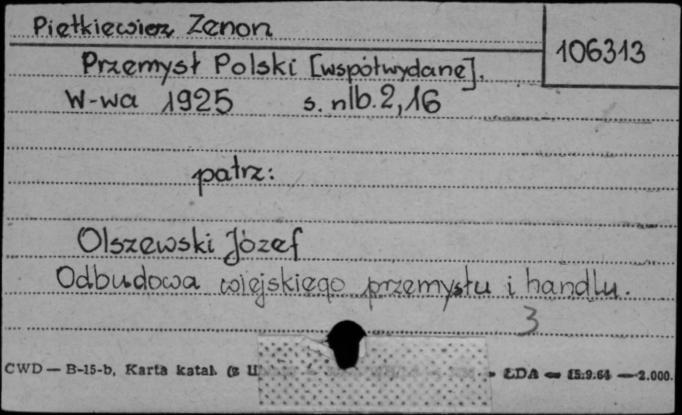 Piętkiewicz Zenon
106313
Przemysł Polski [współwydane].
W-wa 1925 s. nlb. 2, 16
patrz:
Olszewski Józef
Odbudowa wiejskiego przemysłu i handlu.
3
CWD — B-15-b, Karta katal. (z ŁDA — 15.9.64 — 2.000.